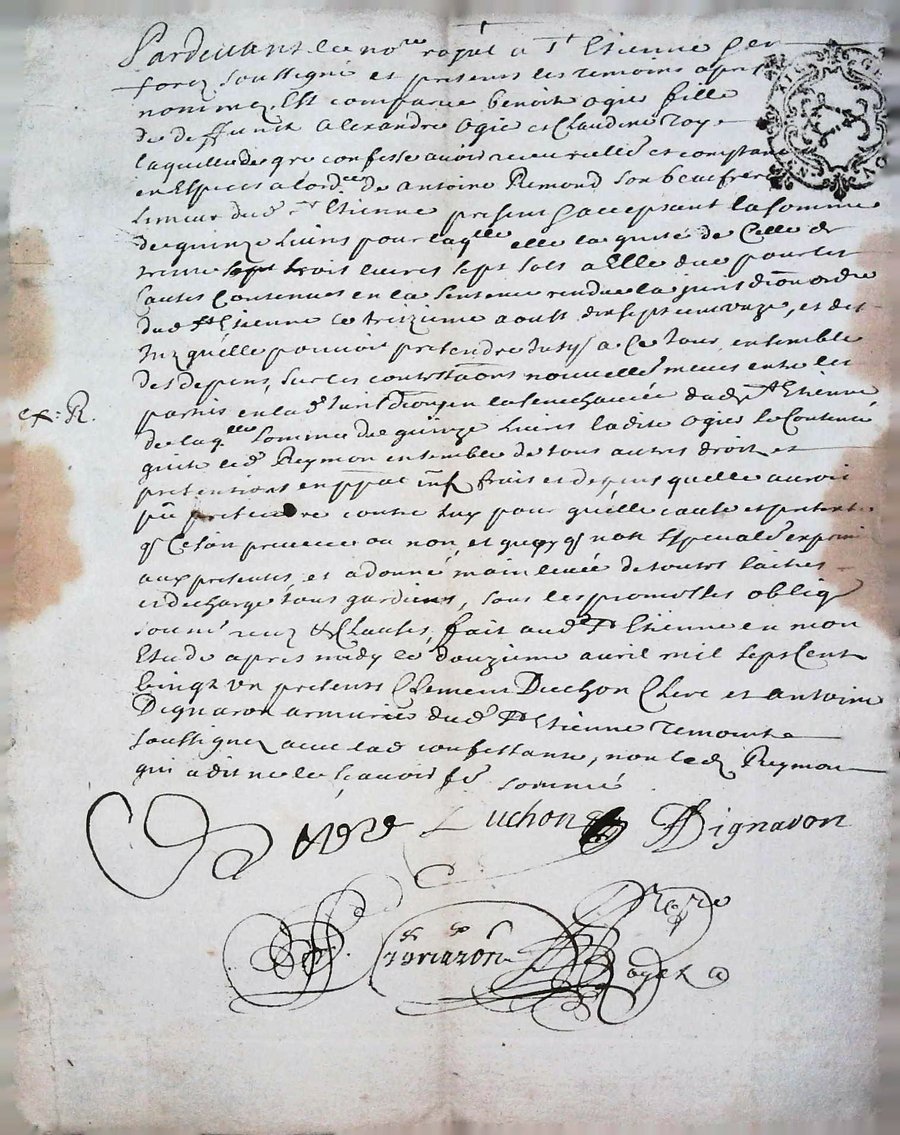 Pardevant le no.re royal a S.t Etienne de
forez soussigné et presents les temoins apres
nommez Est comparue benoite ogié fille
de deffunct alexandre ogié et Claudine roye
laquelle de gré confesse avoir receu reellem.t et comptant
en Especes a lord.re de antoine Remond son beaufrere
limeur dud. S.t Etienne present & acceptant la somme
de quinze livres pour laq.lle elle la quitté de Celle de
trente trois livres sept sols a Elle due pour les
Causes Contenues en la sentence rendue la jurisd.on ord.re
dud. S.t Etienne le treizieme aoust dix sept cent onze, et des
Intz quelle pouvoit pretendre jusq.s a Ce jour, ensemble
des depens, sur les contestaons nouvellem.t meues entre les
parties en lad. Jurisd.on en la senechaucée dud. S.t Etienne
de laq.lle somme de quinze livres ladite ogier se Contente
quite led. Reymon ensemble de tous autres droits et
pretentions en ppal intz frais et depens quelle auroit
pû pretendre contre luy pour quelle cause et pretexte
q. Ce soit preveue ou non, et quoy q. non Speciallem.t exprimé
aux presentes, et a donné main levée de toutes saisies
et decharge tous gardiens, sous les promesses oblig.
soumi.s renz & Clauses, fait aud. S.t Etienne en mon
Etude apres midy le douzieme avril mil sept Cent
vingt un presents Clement Duchon Clerc et antoine
Dignaron armurier dud. S.t Etienne temoins
soussignez avec lad. confessante, non led. Reymon
qui a dit ne le sçavoir fe sommé
ex: R.
Duchon Dignaron